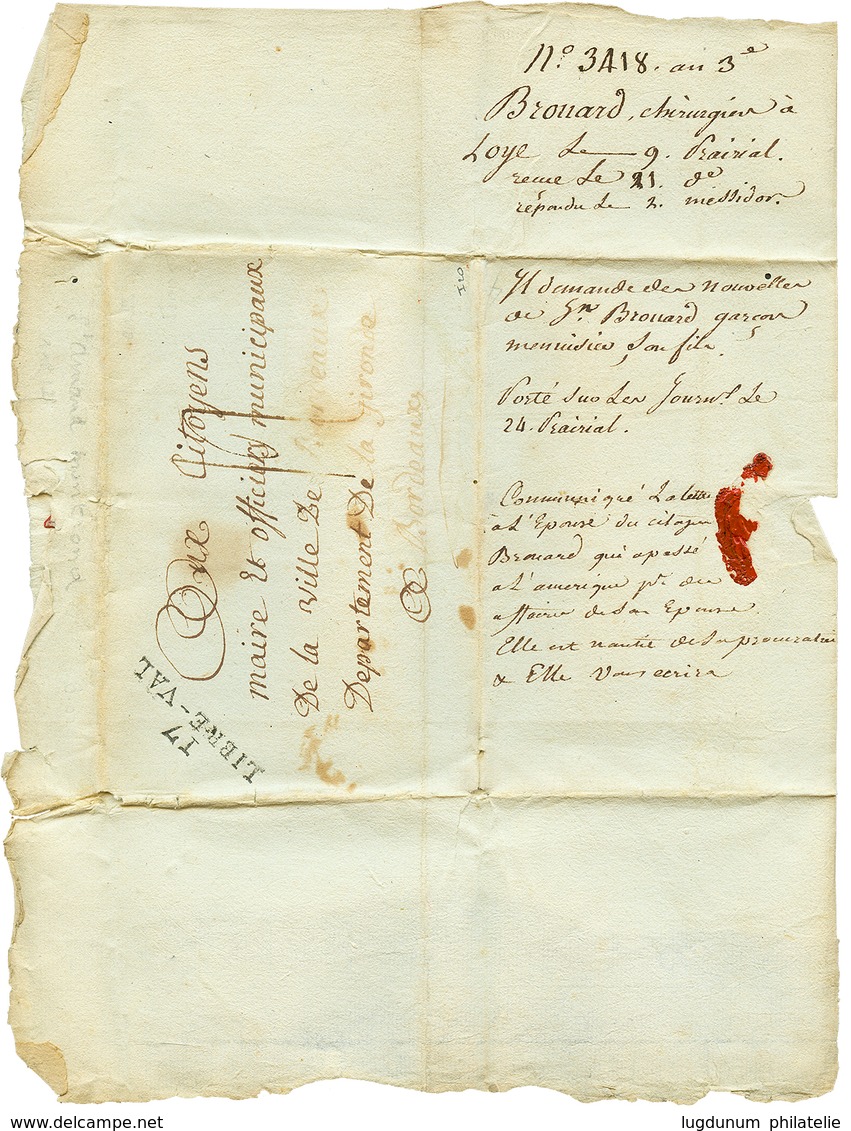 N.o 3418. an 3e
Brouard, chirurgien à
Loye Le 9. Prairial.
recue Le 21. do
répondu Le 2. messidor.
Il demande des nouvelles
de Jn. Brouard garçon
menuisier, son fils.
Porté sur Les Journx Le
24. Prairial.
Communiqué La lettre
à L'Epouse du citoyen
Brouard qui a passé
a L'amerique pr. des
affaires de Son Epouse.
Elle est nantie de Sa procuration
& Elle Vous ecrira
Aux Citoyens
maire Et officiers municipaux
De la Ville De Bordeaux
Departement De la Gironde
A Bordeaux
17
LIBRE-VAL
delcampe.net
lugdunum philatelie